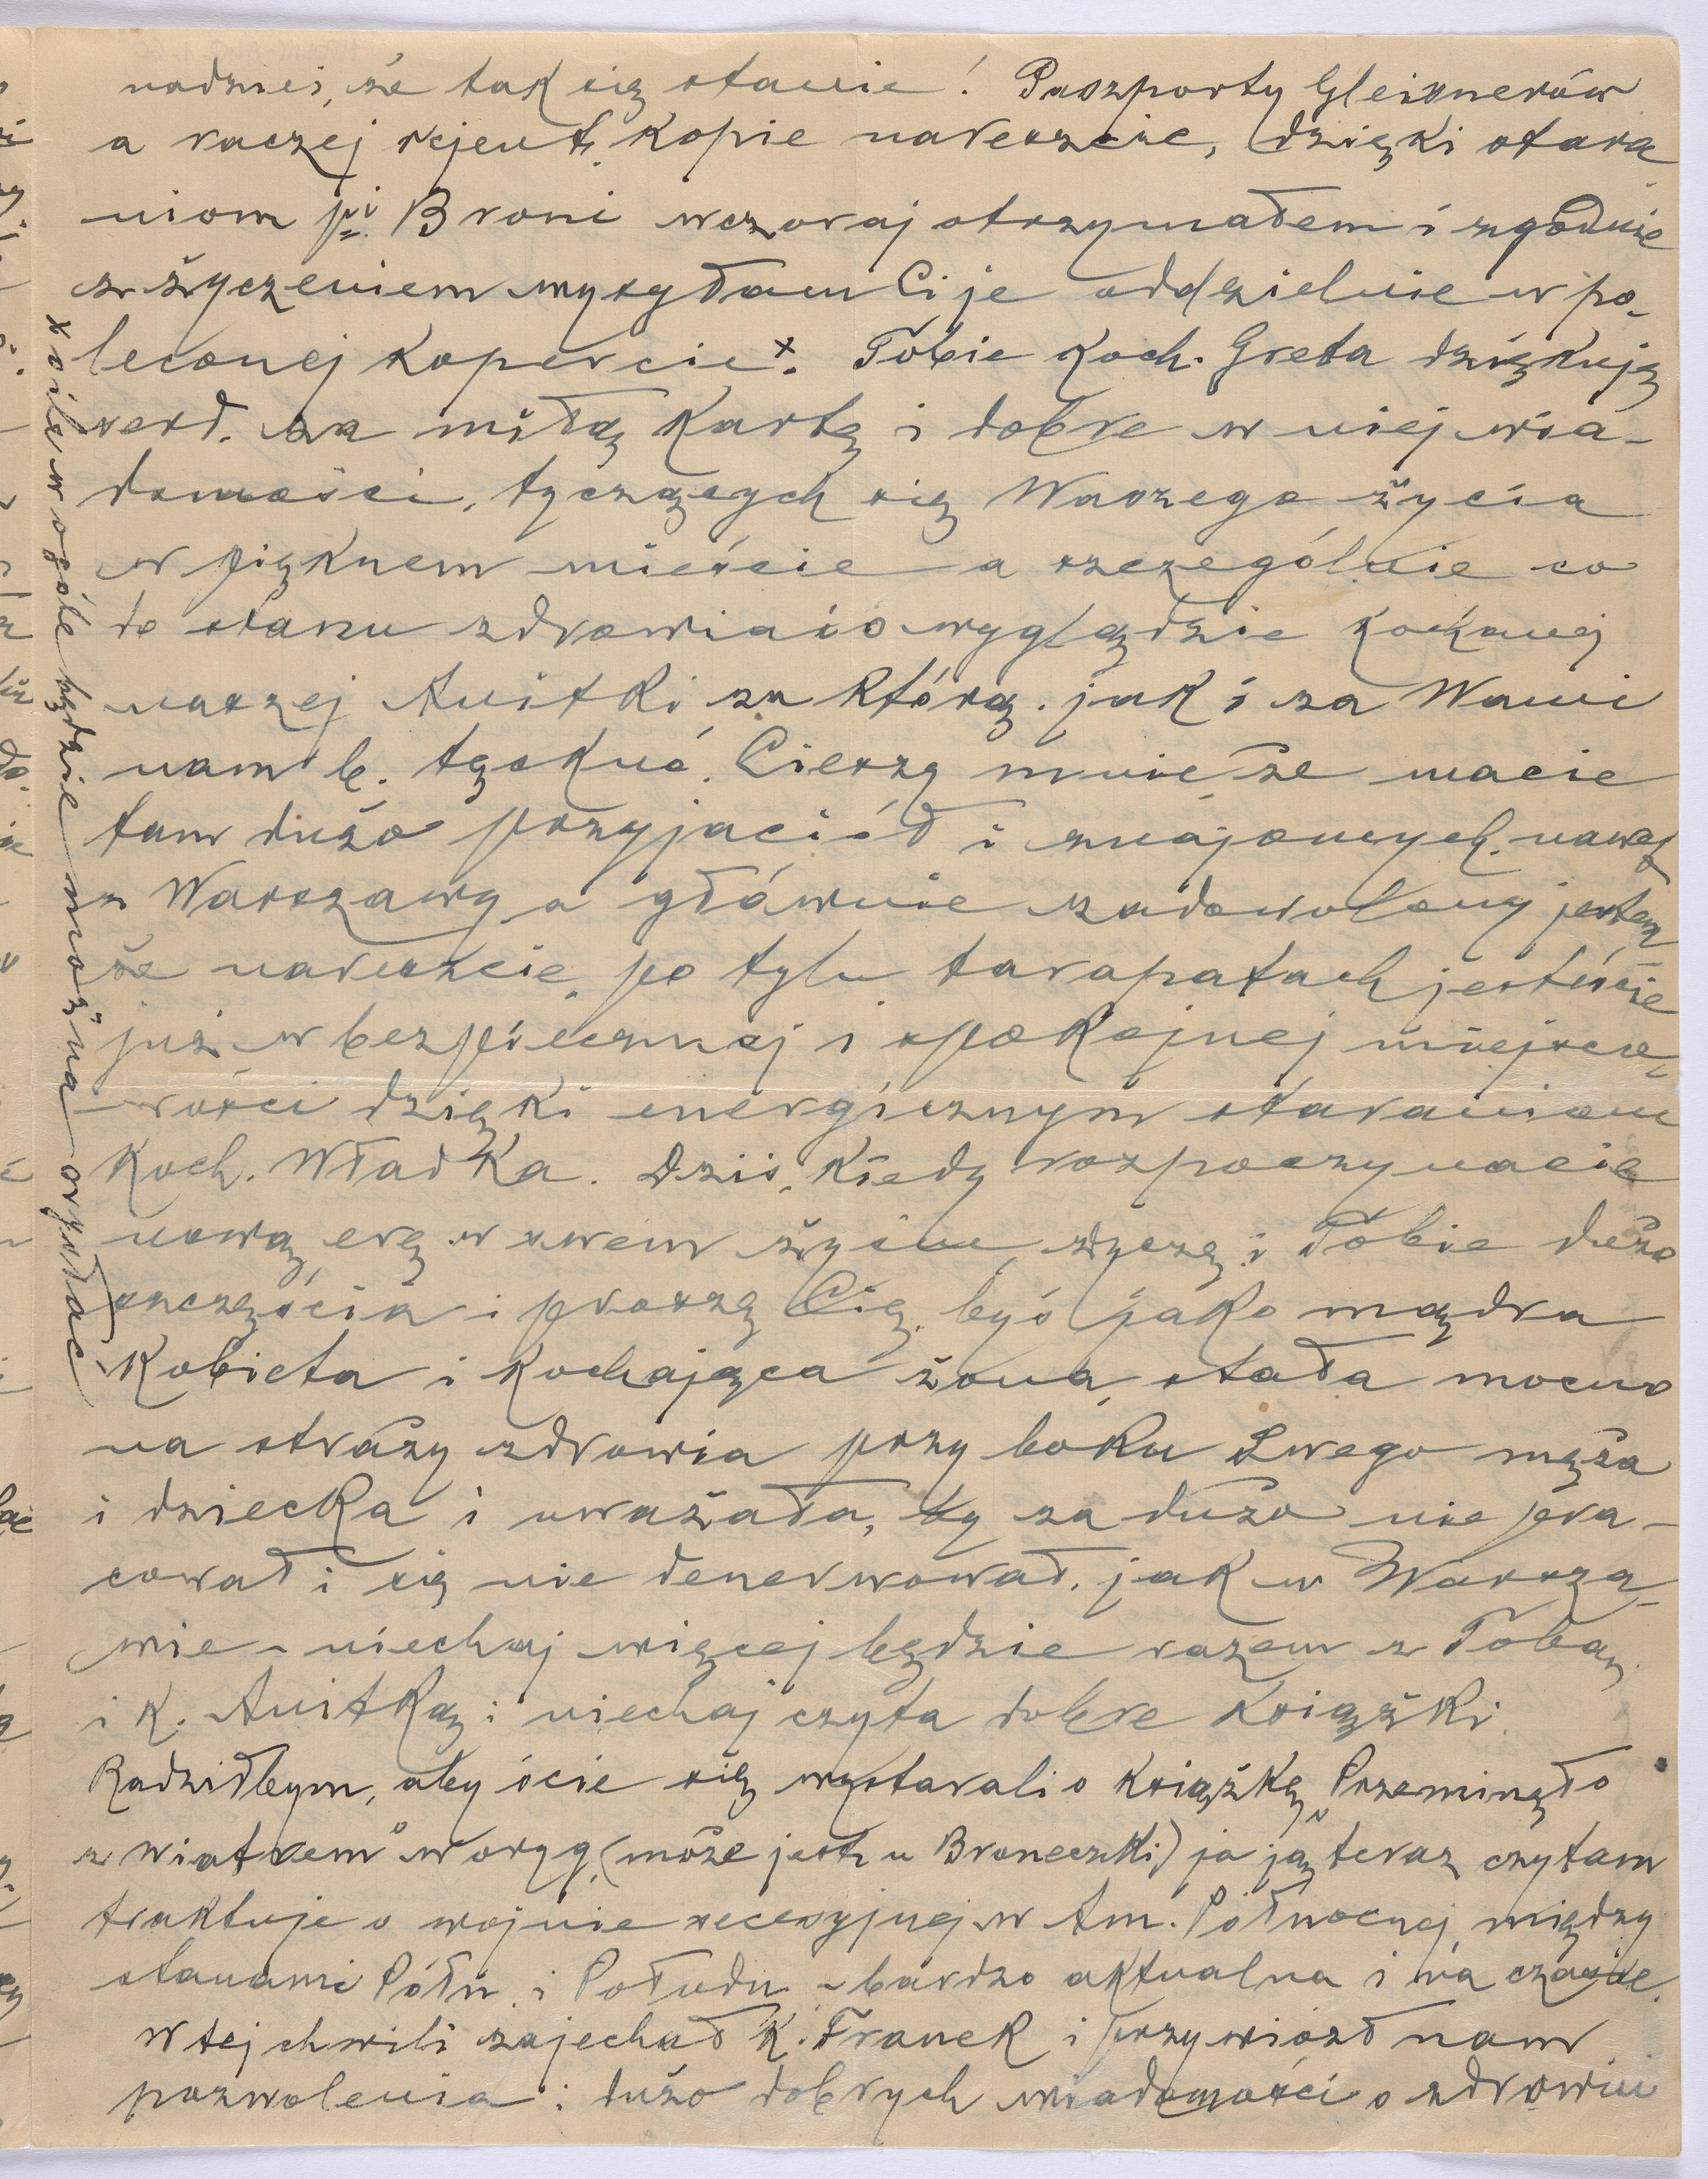 nadziei, że tak się stanie! Paszporty Gleixnerów
a raczej rejent. kopie nareszcie, dzięki stara
niom pi. Broni wczoraj otrzymałem i zgodnie
z życzeniem wysyłam Ci je oddzielnie w po-
leconej kopercie x. Tobie Koch. Greta dziękuję
serd. za miłą kartę i dobre w niej wia-
domości, tyczących się Waszego życia
w pięknem mieście a szczególnie co
do stanu zdrowia i o wyglądzie kochanej
naszej Anitki za którą, jak i za Wami
nam b. tęskno. Cieszy mnie, że macie
tam dużo przyjaciół i znajomych, nawet
z Warszawy a głównie zadowolony jestem
że nareszcie, po tylu tarapatach jesteście
już w bezpiecznej i spokojnej miejsco-
wości dzięki energicznym staraniom
Koch. Władka. Dziś, kiedy rozpoczynacie
nową erę w swem życiu, życzę i Tobie dużo
szczęścia i proszę Cię, byś jako mądra
kobieta i kochająca żona, stała mocno
na straży zdrowia przy boku Swego męża
i dziecka i uważała, by za dużo nie pra-
cował i się nie denerwował, jak w Warsza-
wie - niechaj więcej będzie razem z Tobą
i K. Anitką i niechaj czyta dobre książki.
Radziłbym, abyście się wystarali o książkę „Przeminęło
z wiatrem" w oryg. (może jest u Broneczki) ja ją teraz czytam
traktuje o wojnie secesyjnej w Am. Północnej, między
stanami Półn. i Połudn. - bardzo aktualna i na czasie.
W tej chwili zajechał K. Franek i przywiózł nam
pozwolenia i dużo dobrych wiadomości o zdrowiu
x o ile w ogóle będzie można wysłać